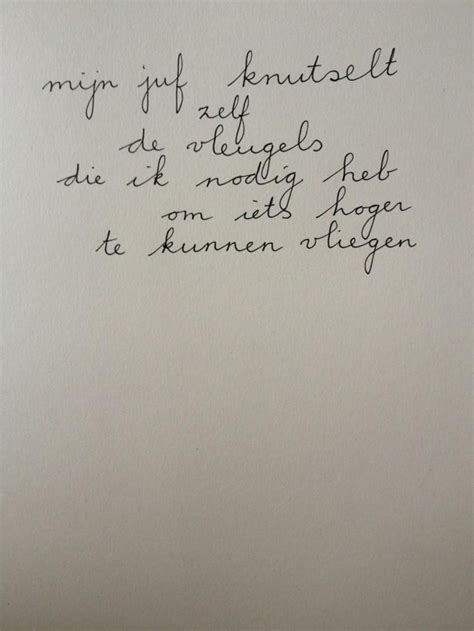 mijn juf knutselt
zelf
de vleugels
die ik nodig heb
om iets hoger
te kunnen vliegen